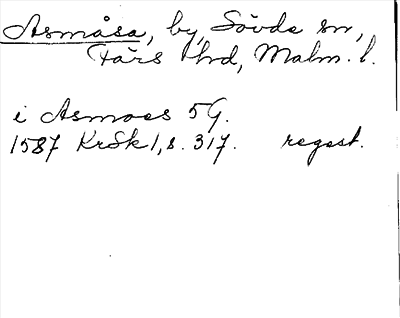 Asmåsa, by, Sövde sn,
Färs hd, Malm. l.
i Asmoes 5 G.
1587 KrSk 1, s. 317. regest.